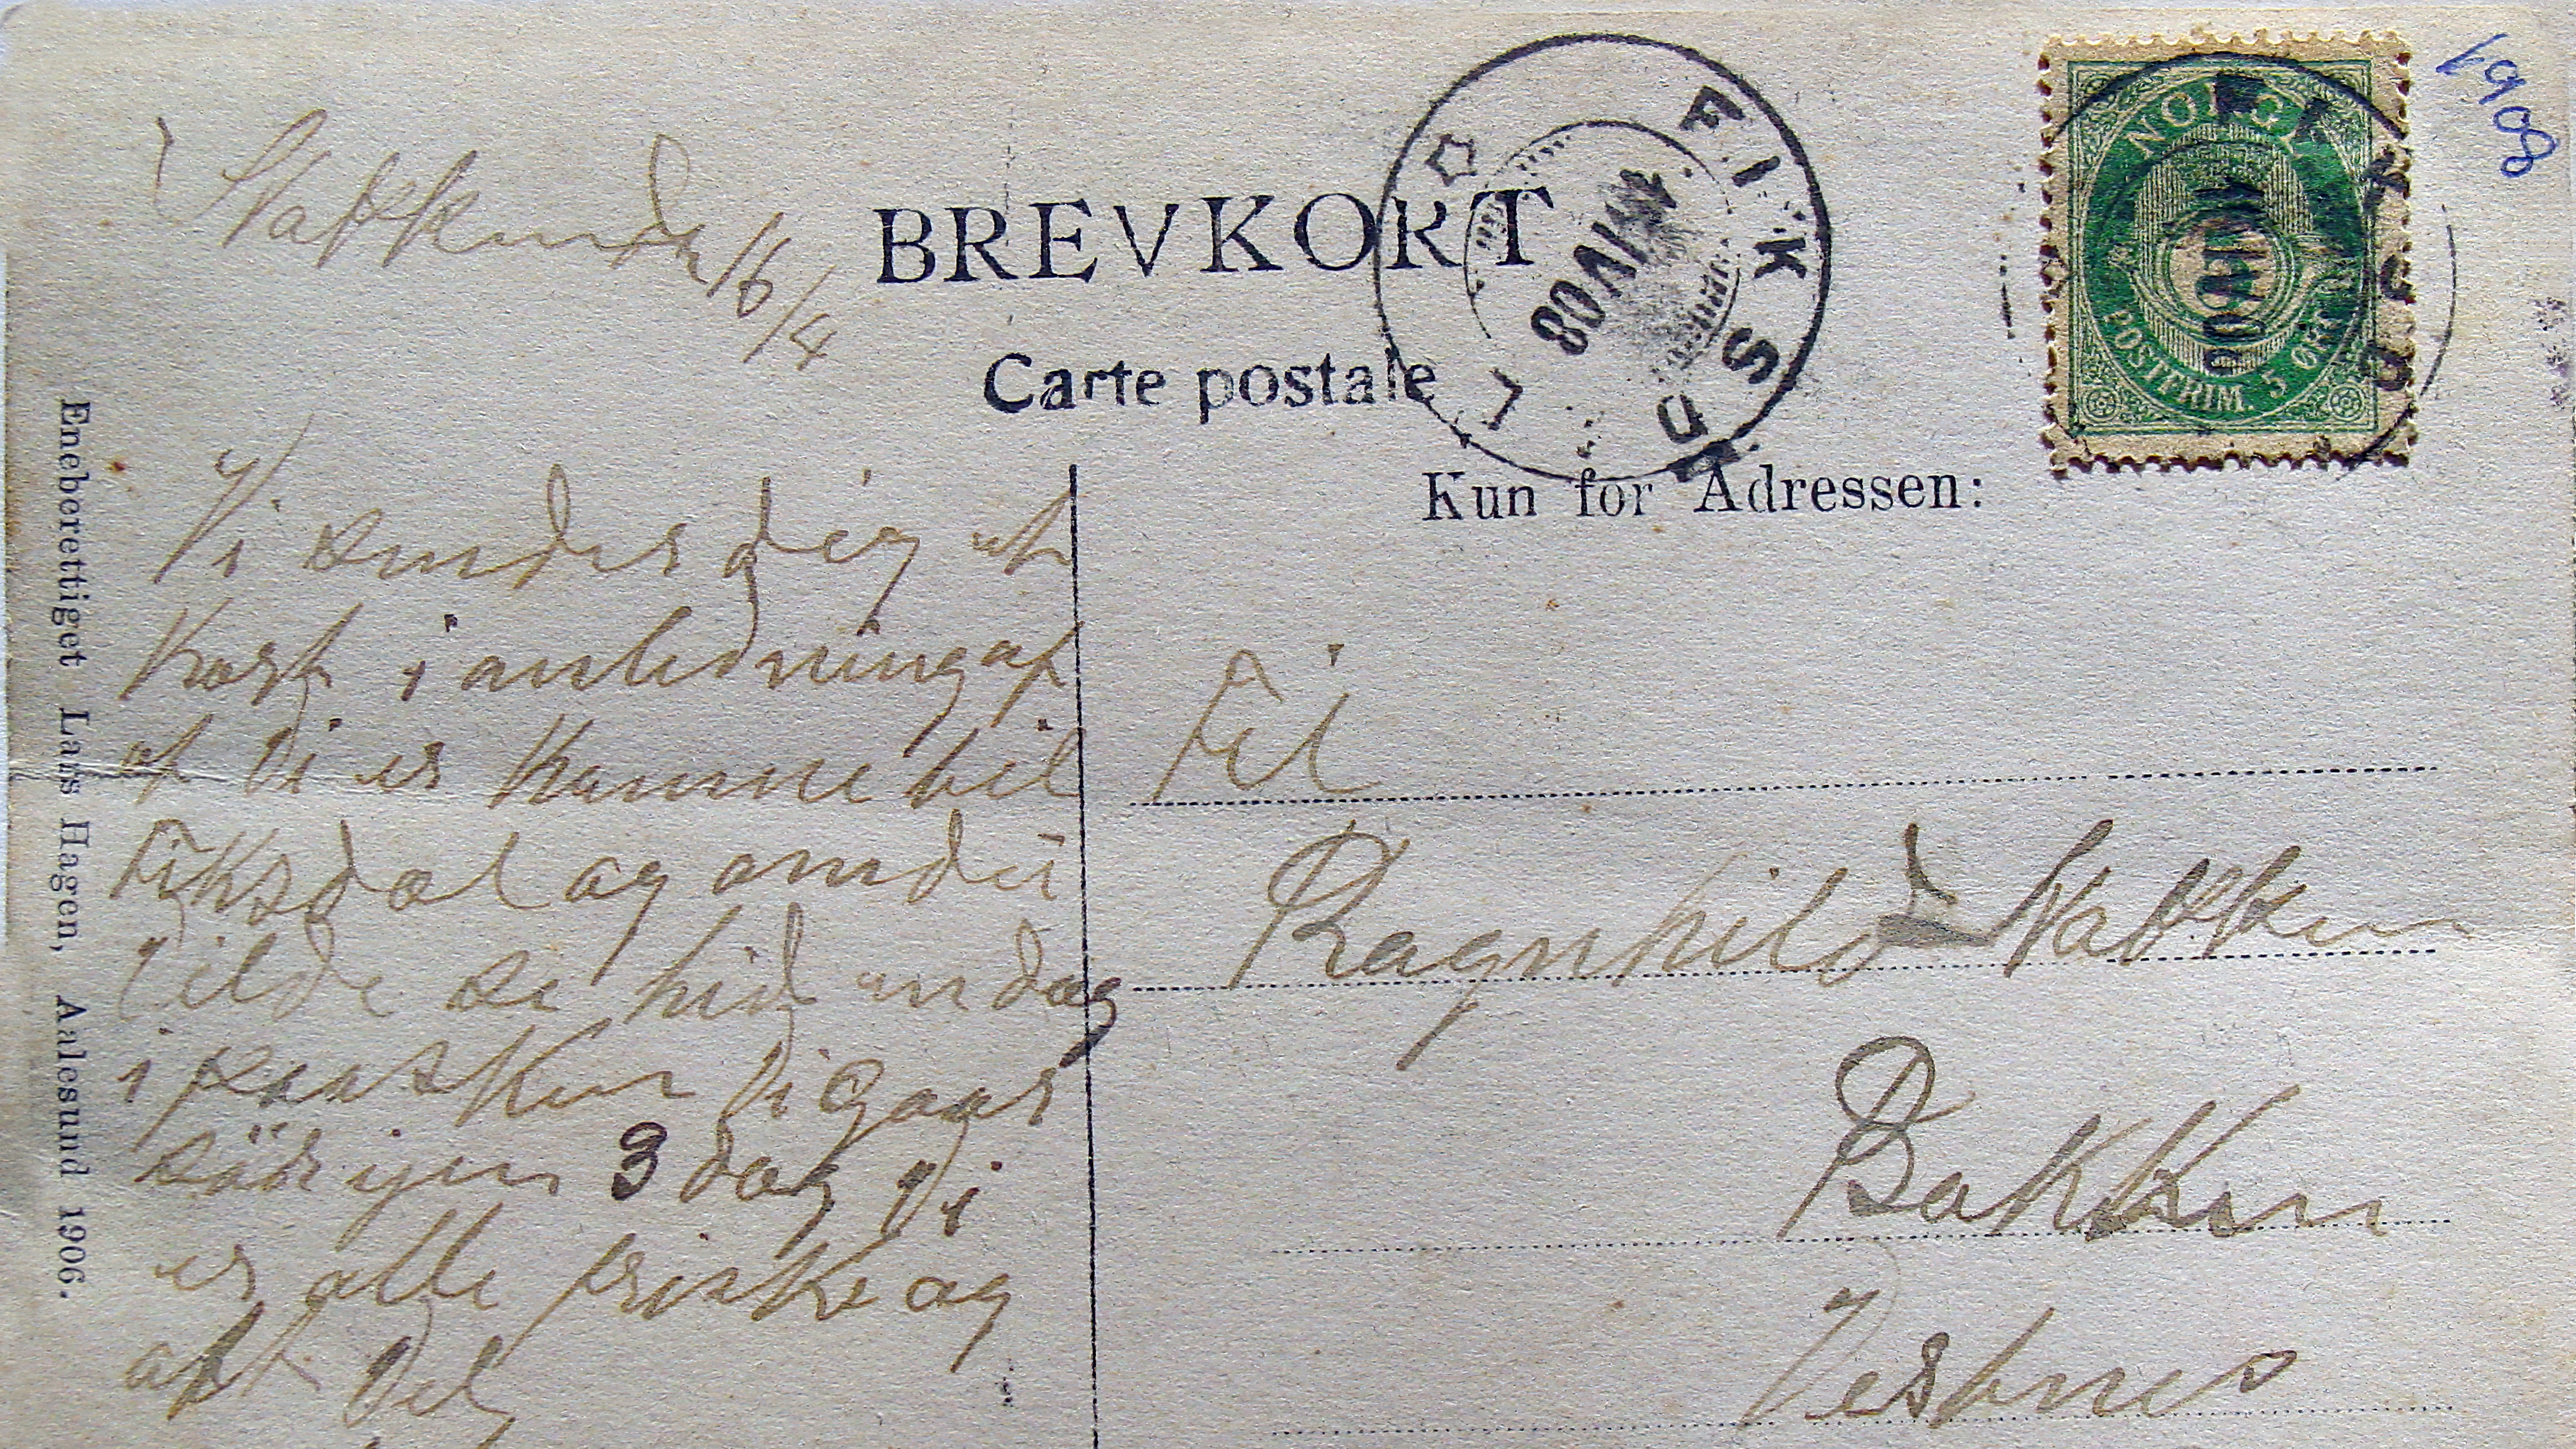 1908
NORGE
POSTFRIM. 5 ØRE
FIKSDAL
14 IV 08
BREVKORT
Carte postale
Kun for Adressen:
16/4
Vi sender dig et
Kort i anledning af
at Vi er Komne til
Fiksdal og om du
Vilde se hid en dag
i paasken Vi Gaar
sör igen 3 dag Vi
er alle friske og
alt Vel
Til
Ragnhild
Bakken
Vestnes
Eneberettiget Lars Hagen, Aalesund 1906.